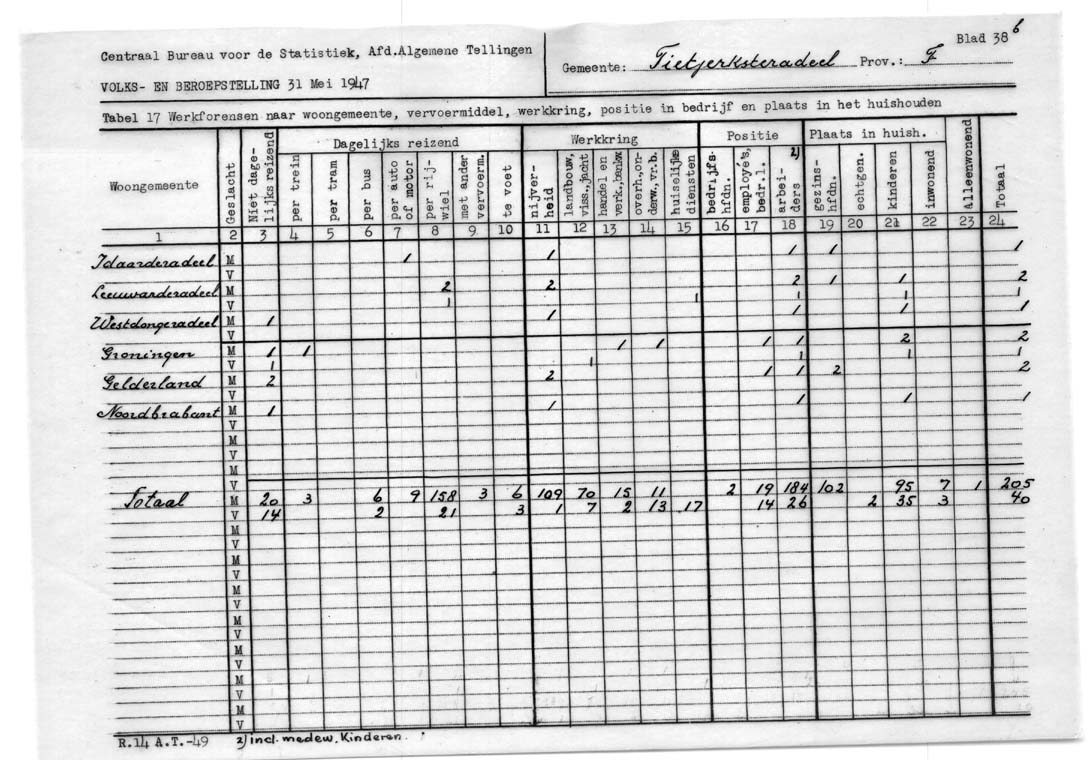 Centraal Bureau voor de Statistiek, Afd.Algemene Tellingen
VOLKS- EN BEROEPSTELLING 31 Mei 1947
Gemeente: Tietjerksteradeel Prov.: F
Blad 38 b
Tabel 17 Werkforensen naar woongemeente, vervoermiddel, werkkring, positie in bedrijf en plaats in het huishouden
Woongemeente | Geslacht | Niet dage-lijks reizend | Dagelijks reizend | Werkkring | Positie | Plaats in huish. | Alleenwonend | Totaal
per trein | per tram | per bus | per auto of motor | per rij-wiel | met ander vervoerm. | te voet | nijver-heid | landbouw, viss.,jacht | handel en verk.,bankw | overh.,on-derw.,vr.b. | huiselijke diensten | bedrijfs-hfdn. | employé's, bedr.l. | arbei-ders 2) | gezins-hfdn. | echtgen. | kinderen | inwonend
1 2 3 4 5 6 7 8 9 10 11 12 13 14 15 16 17 18 19 20 21 22 23 24
Idaarderadeel M 1 1 1 1 1
V
Leeuwarderadeel M 2 2 2 1 1 2
V 1 1 1 1 1
Westdongeradeel M 1 1 1 1 1
V
Groningen M 1 1 1 1 1 1 2 2
V 1 1 1 1 1
Gelderland M 2 2 1 1 2 2
V
Noordbrabant M 1 1 1 1 1
V
M
V
M
V
Totaal M 20 3 6 9 158 3 6 109 70 15 11 2 19 184 102 95 7 1 205
V 14 2 21 3 1 7 2 13 17 14 26 2 35 3 40
M
V
M
V
M
V
M
V
M
V
M
V
M
V
R.14 A.T.-49 2) incl. medew. Kinderen.